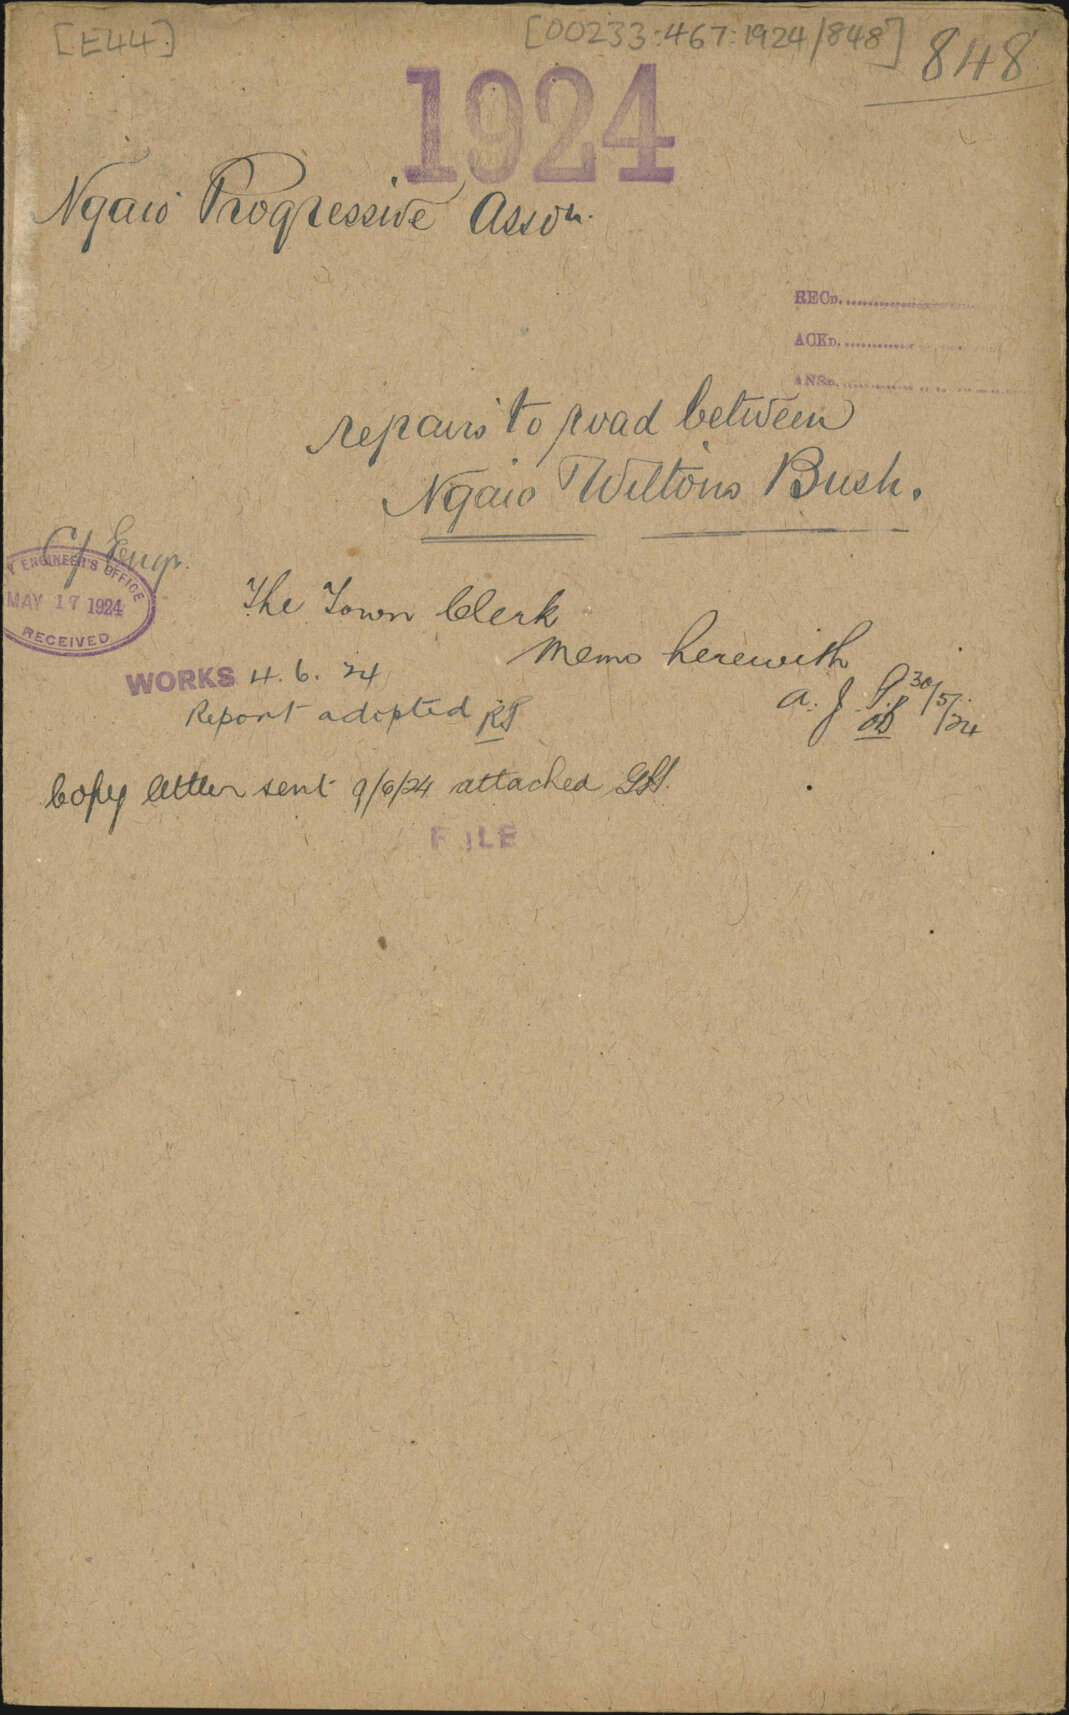 [E44]
[00233:467:1924/848]
848
1924
Ngaio Progressive Asson.
RECD.
ACKD.
ANSD.
repairs to road between
Ngaio & Wiltons Bush.
Cy Engr.
Y ENGINEER'S OFFICE
MAY 17 1924
RECEIVED
The Town Clerk
Memo herewith
30/5/24
WORKS 4. 6. 24
Report adopted
Copy letter sent 9/6/24 attached
FILE